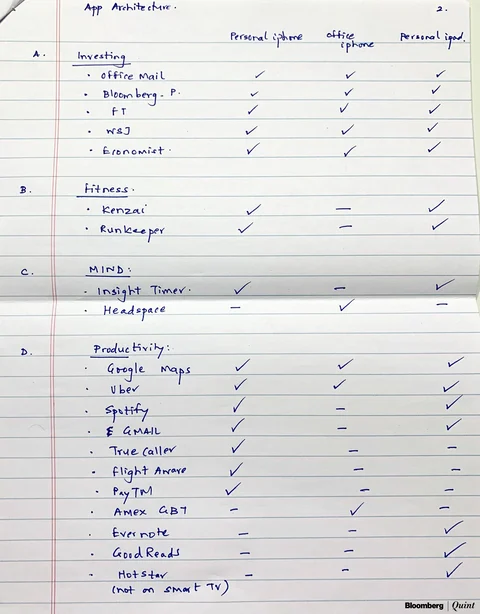 App Architecture. 2.
Personal iphone office iphone Personal ipad.
A. Investing
• office Mail ✓ ✓ ✓
• Bloomberg. P. ✓ ✓ ✓
• FT ✓ ✓ ✓
• WSJ ✓ ✓ ✓
• Economist. ✓ ✓ ✓
B. Fitness.
• Kenzai ✓ — ✓
• Runkeeper ✓ — ✓
C. MIND:
• Insight Timer. ✓ — ✓
• Headspace — ✓ —
D. Productivity:
• Google Maps ✓ ✓ ✓
• Uber ✓ ✓ ✓
• Spotify ✓ — ✓
• GMAIL ✓ — ✓
• True Caller ✓ — —
• Flight Aware ✓ — —
• PayTM ✓ — —
• Amex GBT — ✓ —
• Evernote — — ✓
• GoodReads — — ✓
• Hotstar — — ✓
(not on smart TV)
Bloomberg | Quint